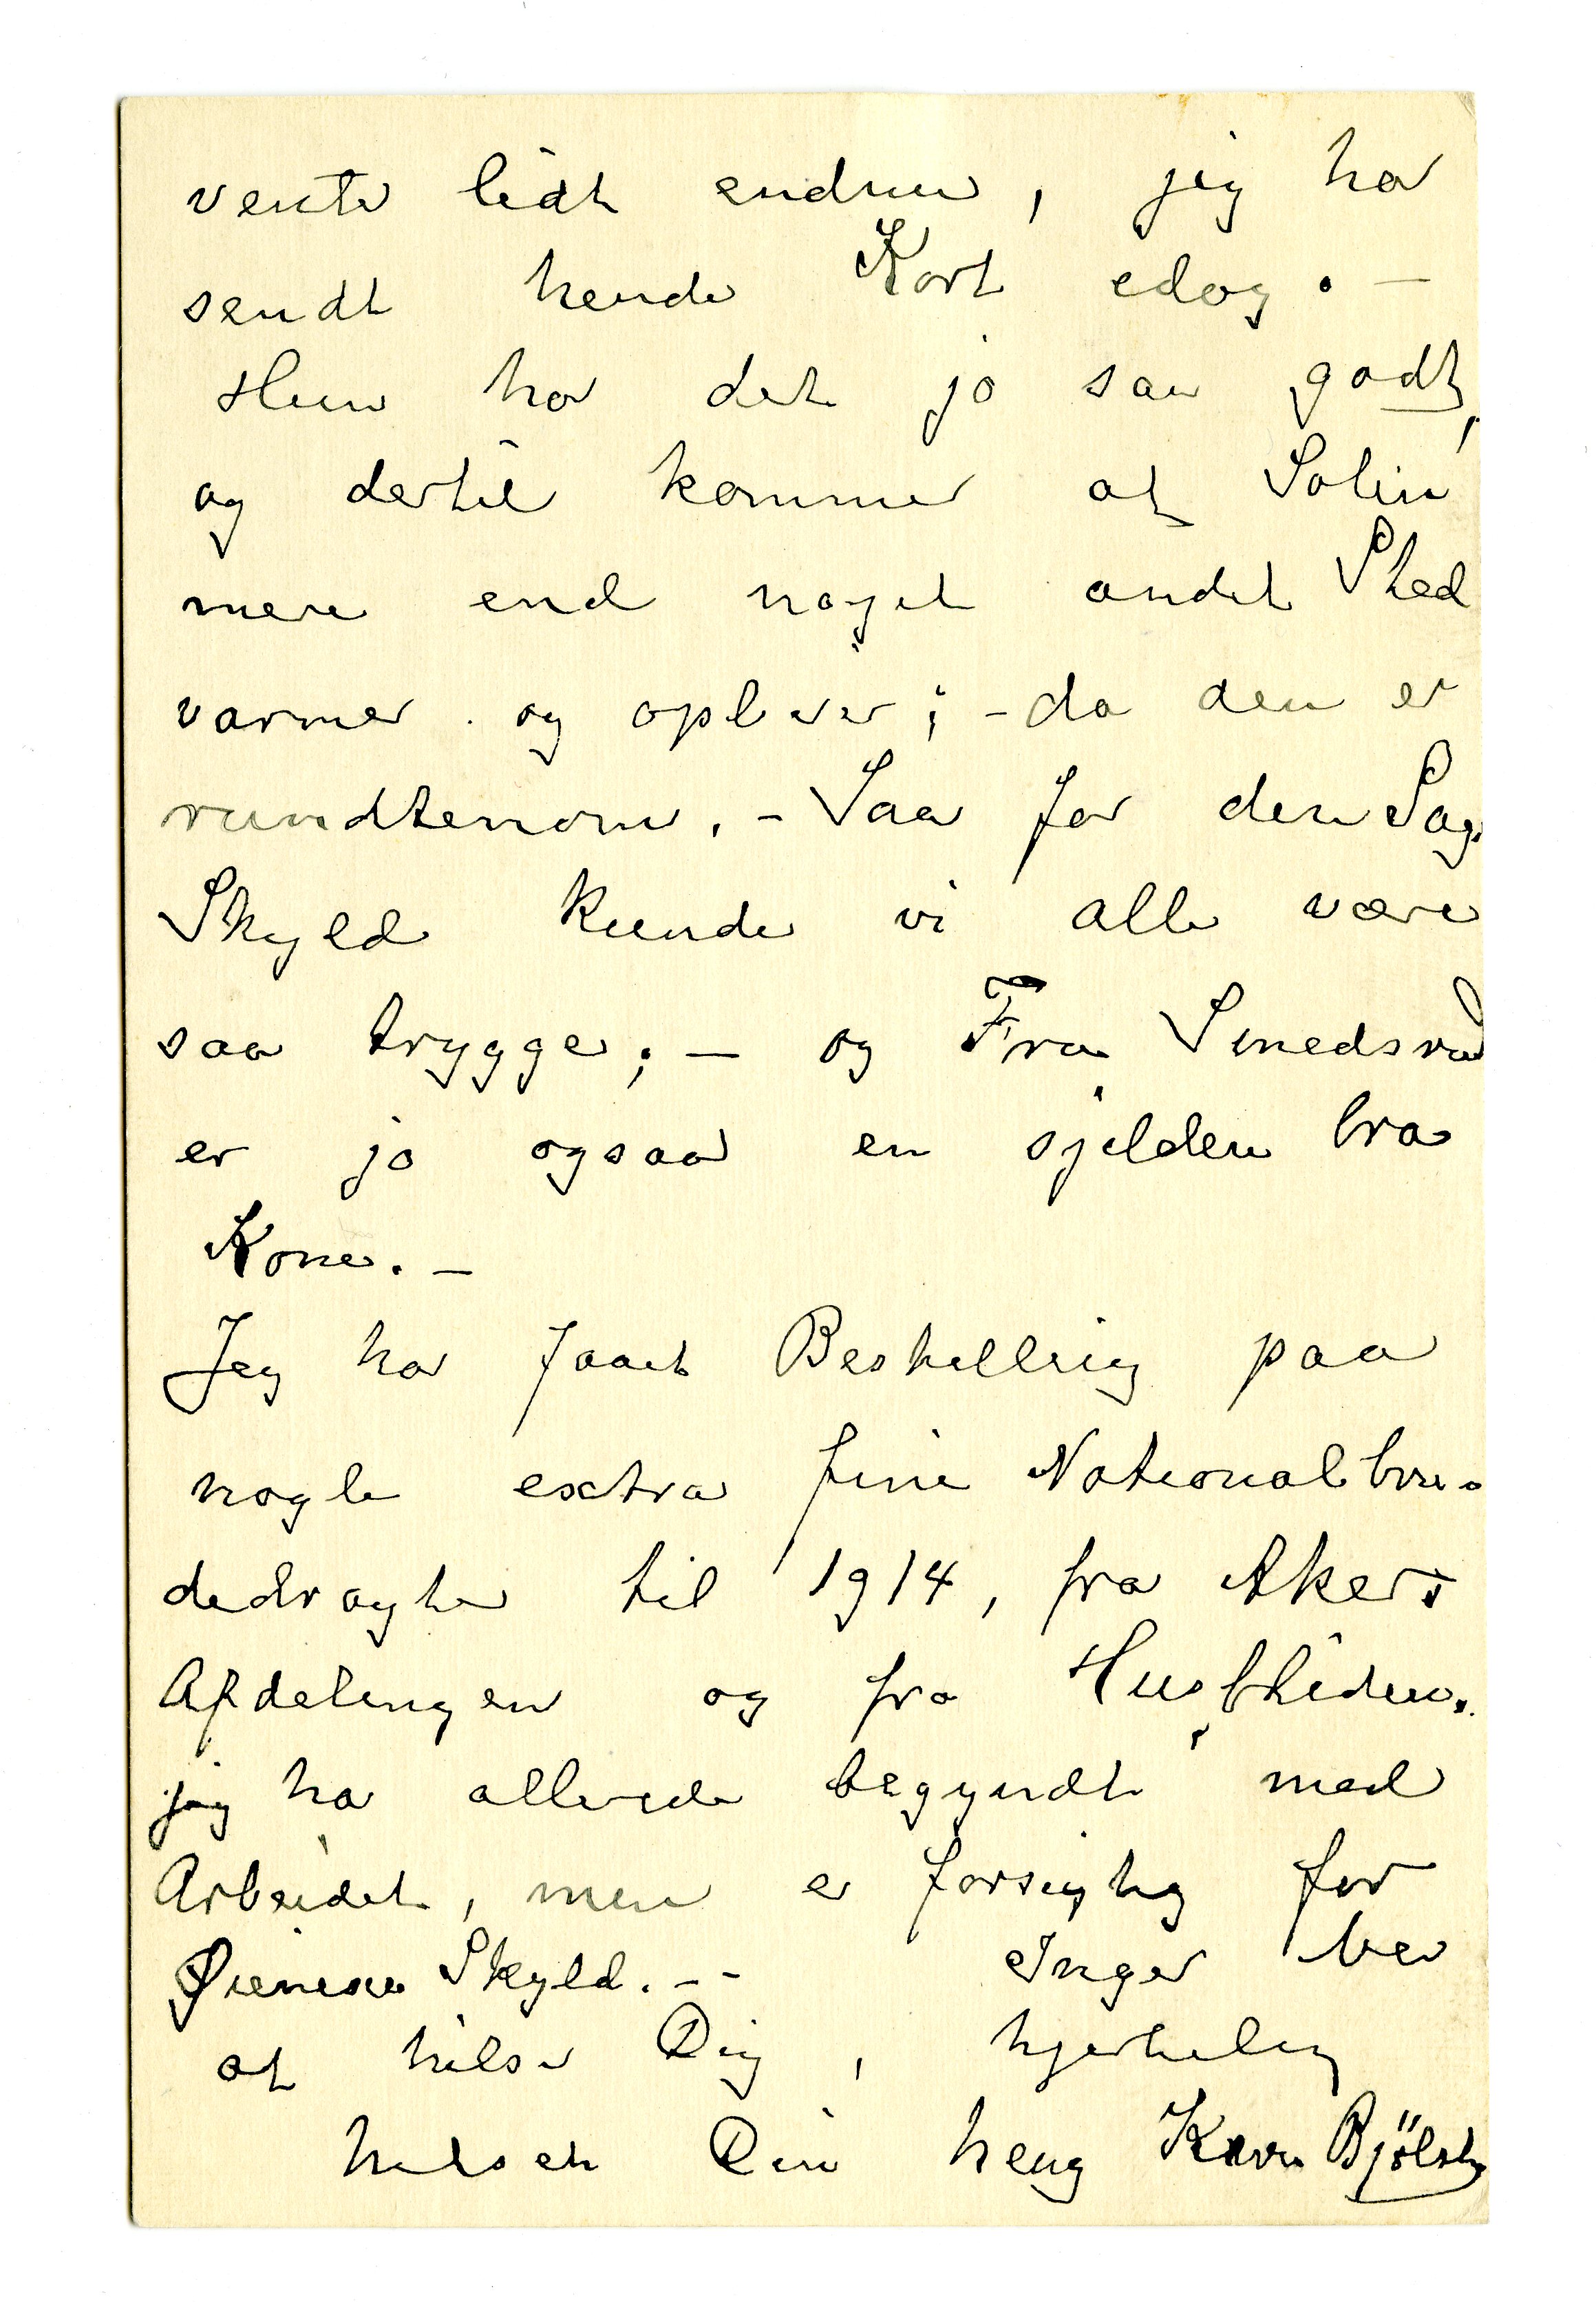 vente lidt endnu, jeg har
sendt hende Kort idag. —
Hun har det jo saa godt,
og dertil kommer at Solen
mere end noget andet Sted
varmer og opliver; - da den er
rundtenom. - Saa for den Sags
Skyld kunde vi alle være
saa trygge; — og Fru Smedsrud
er jo ogsaa en sjelden bra
Kone. —
Jeg har faaet Bestilling paa
nogle extra fine Nationalbru-
dedragter til 1914, fra Akers
Afdelingen og fra Husfliden.
jeg har allerede begyndt med
Arbeidet, men er forsigtig for
Øienene Skyld. - - Inger ber
at hilse Dig, hjertelig
hilset Din heng Karen Bjölstad